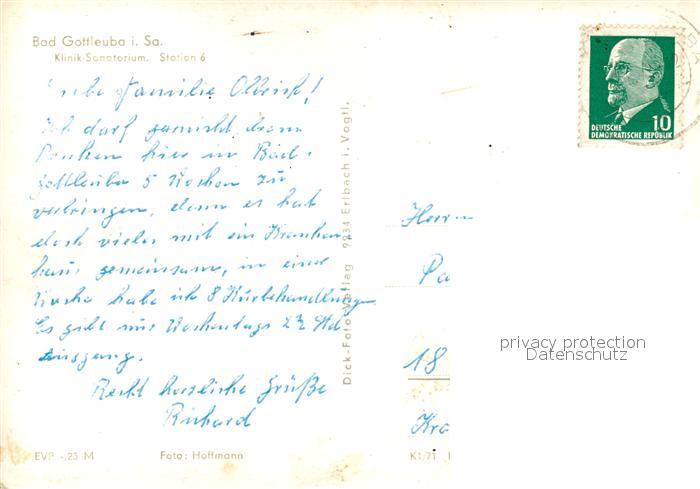 Bad Gottleuba i. Sa.
Klinik-Sanatorium. Station 6
Liebe Familie Olbrich!
Ich darf
hier in Bad-
Gottleuba 5 Wochen zu
verbringen, denn es hat
doch vieles mit ein Kranken
haus gemeinsam, in eine
Woche habe ich 8 Kurbehandlungen
Es gibt nur Wochentags 2½ Std
Ausgang.
Recht herzliche Grüße
Richard
EVP -,25 M
Foto: Hoffmann
K1/71
Dick-Foto-Verlag 9934 Erlbach i. Vogtl.
10
DEUTSCHE
DEMOKRATISCHE REPUBLIK
Herrn
Pa
18
Kra
privacy protection
Datenschutz